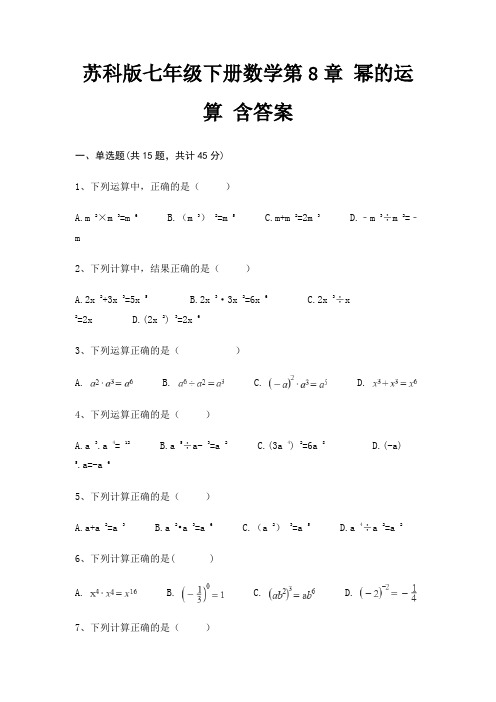 苏科版七年级下册数学第8章 幂的运
算 含答案
一、单选题(共15题，共计45分)
1、下列运算中，正确的是（ ）
A.m ²×m ³=m ⁶ B.（m ³） ²=m ⁵ C.m+m ²=2m ³ D.﹣m ³÷m ²=﹣
m
2、下列计算中，结果正确的是（ ）
A.2x ²+3x ³=5x ⁵ B.2x ³·3x ²=6x ⁶ C.2x ³÷x
²=2x D.(2x ²) ³=2x ⁶
3、下列运算正确的是（ ）
A. a²·a³=a⁶ B. a⁶÷a²=a³ C. (−a)²·a³=a⁵ D. x³+x³=x⁶
4、下列运算正确的是（ ）
A.a ³.a ⁴= ¹² B.a ⁵÷a- ³=a ² C.(3a ⁴) ²=6a ⁸ D.(-a)
⁵.a=-a ⁶
5、下列计算正确的是（ ）
A.a+a ²=a ³ B.a ²•a ³=a ⁶ C.（a ²） ³=a ⁵ D.a ⁴÷a ²=a ²
6、下列计算正确的是( )
A. x⁴·x⁴=x¹⁶ B. (−1/3)⁰=1 C. (ab²)³=ab⁶ D. (−2)⁻²=−1/4
7、下列计算正确的是（ ）